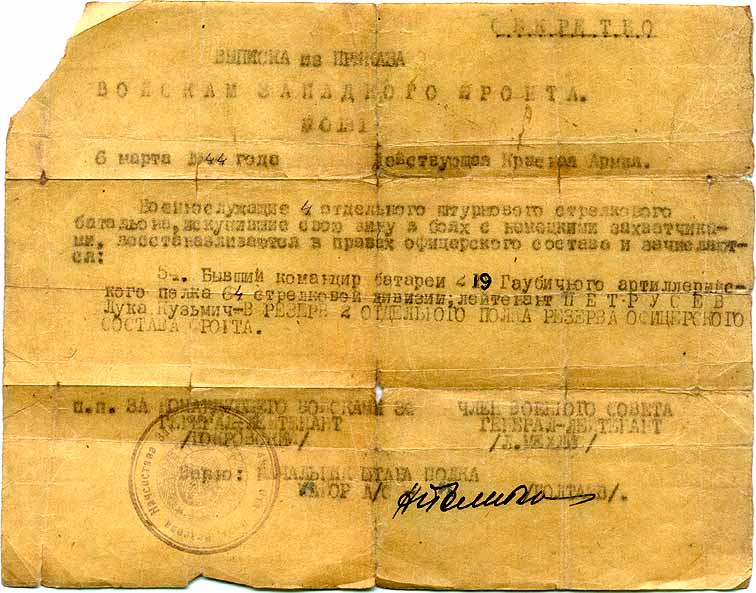 С.Е.К.Р.Е.Т.Н.О
ВЫПИСКА из ПРИКАЗА
ВОЙСКАМ ЗАПАДНОГО ФРОНТА.
6 марта 1944 года Действующая Красная Армия.
Военнослужащие 4 отдельного штурмового стрелкового
батальона, искупившие свою вину в боях с немецкими захватчика-
ми, восстанавливаются в правах офицерского состава и зачисляют-
ся:
Бывший командир батареи 219 Гаубичного артиллерийс-
кого полка 64 стрелковой дивизии, лейтенант ПЕТРУСЕВ
Лука Кузьмич-В РЕЗЕРВ 2 ОТДЕЛЬНОГО ПОЛКА РЕЗЕРВА ОФИЦЕРСКОГО
СОСТАВА ФРОНТА.
п.п. ЗА КОМАНДУЮЩЕГО ВОЙСКАМИ ЗФ ЧЛЕН ВОЕННОГО СОВЕТА
ГЕНЕРАЛ-ЛЕЙТЕНАНТ ГЕНЕРАЛ-ЛЕЙТЕНАНТ
/ПОКРОВСКИЙ/ /Л.МЕХЛИС/
Верно: НАЧАЛЬНИК ШТАБА ПОЛКА
МАЙОР А/С